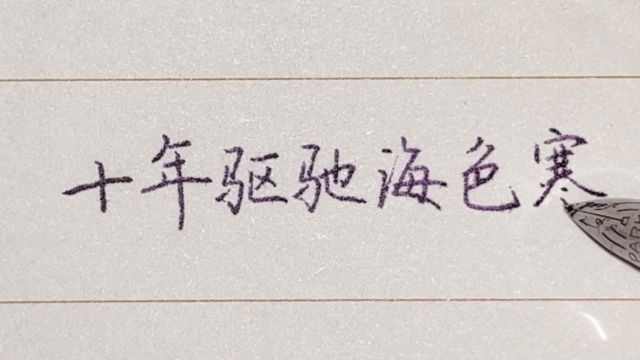 十年驱驰海色寒